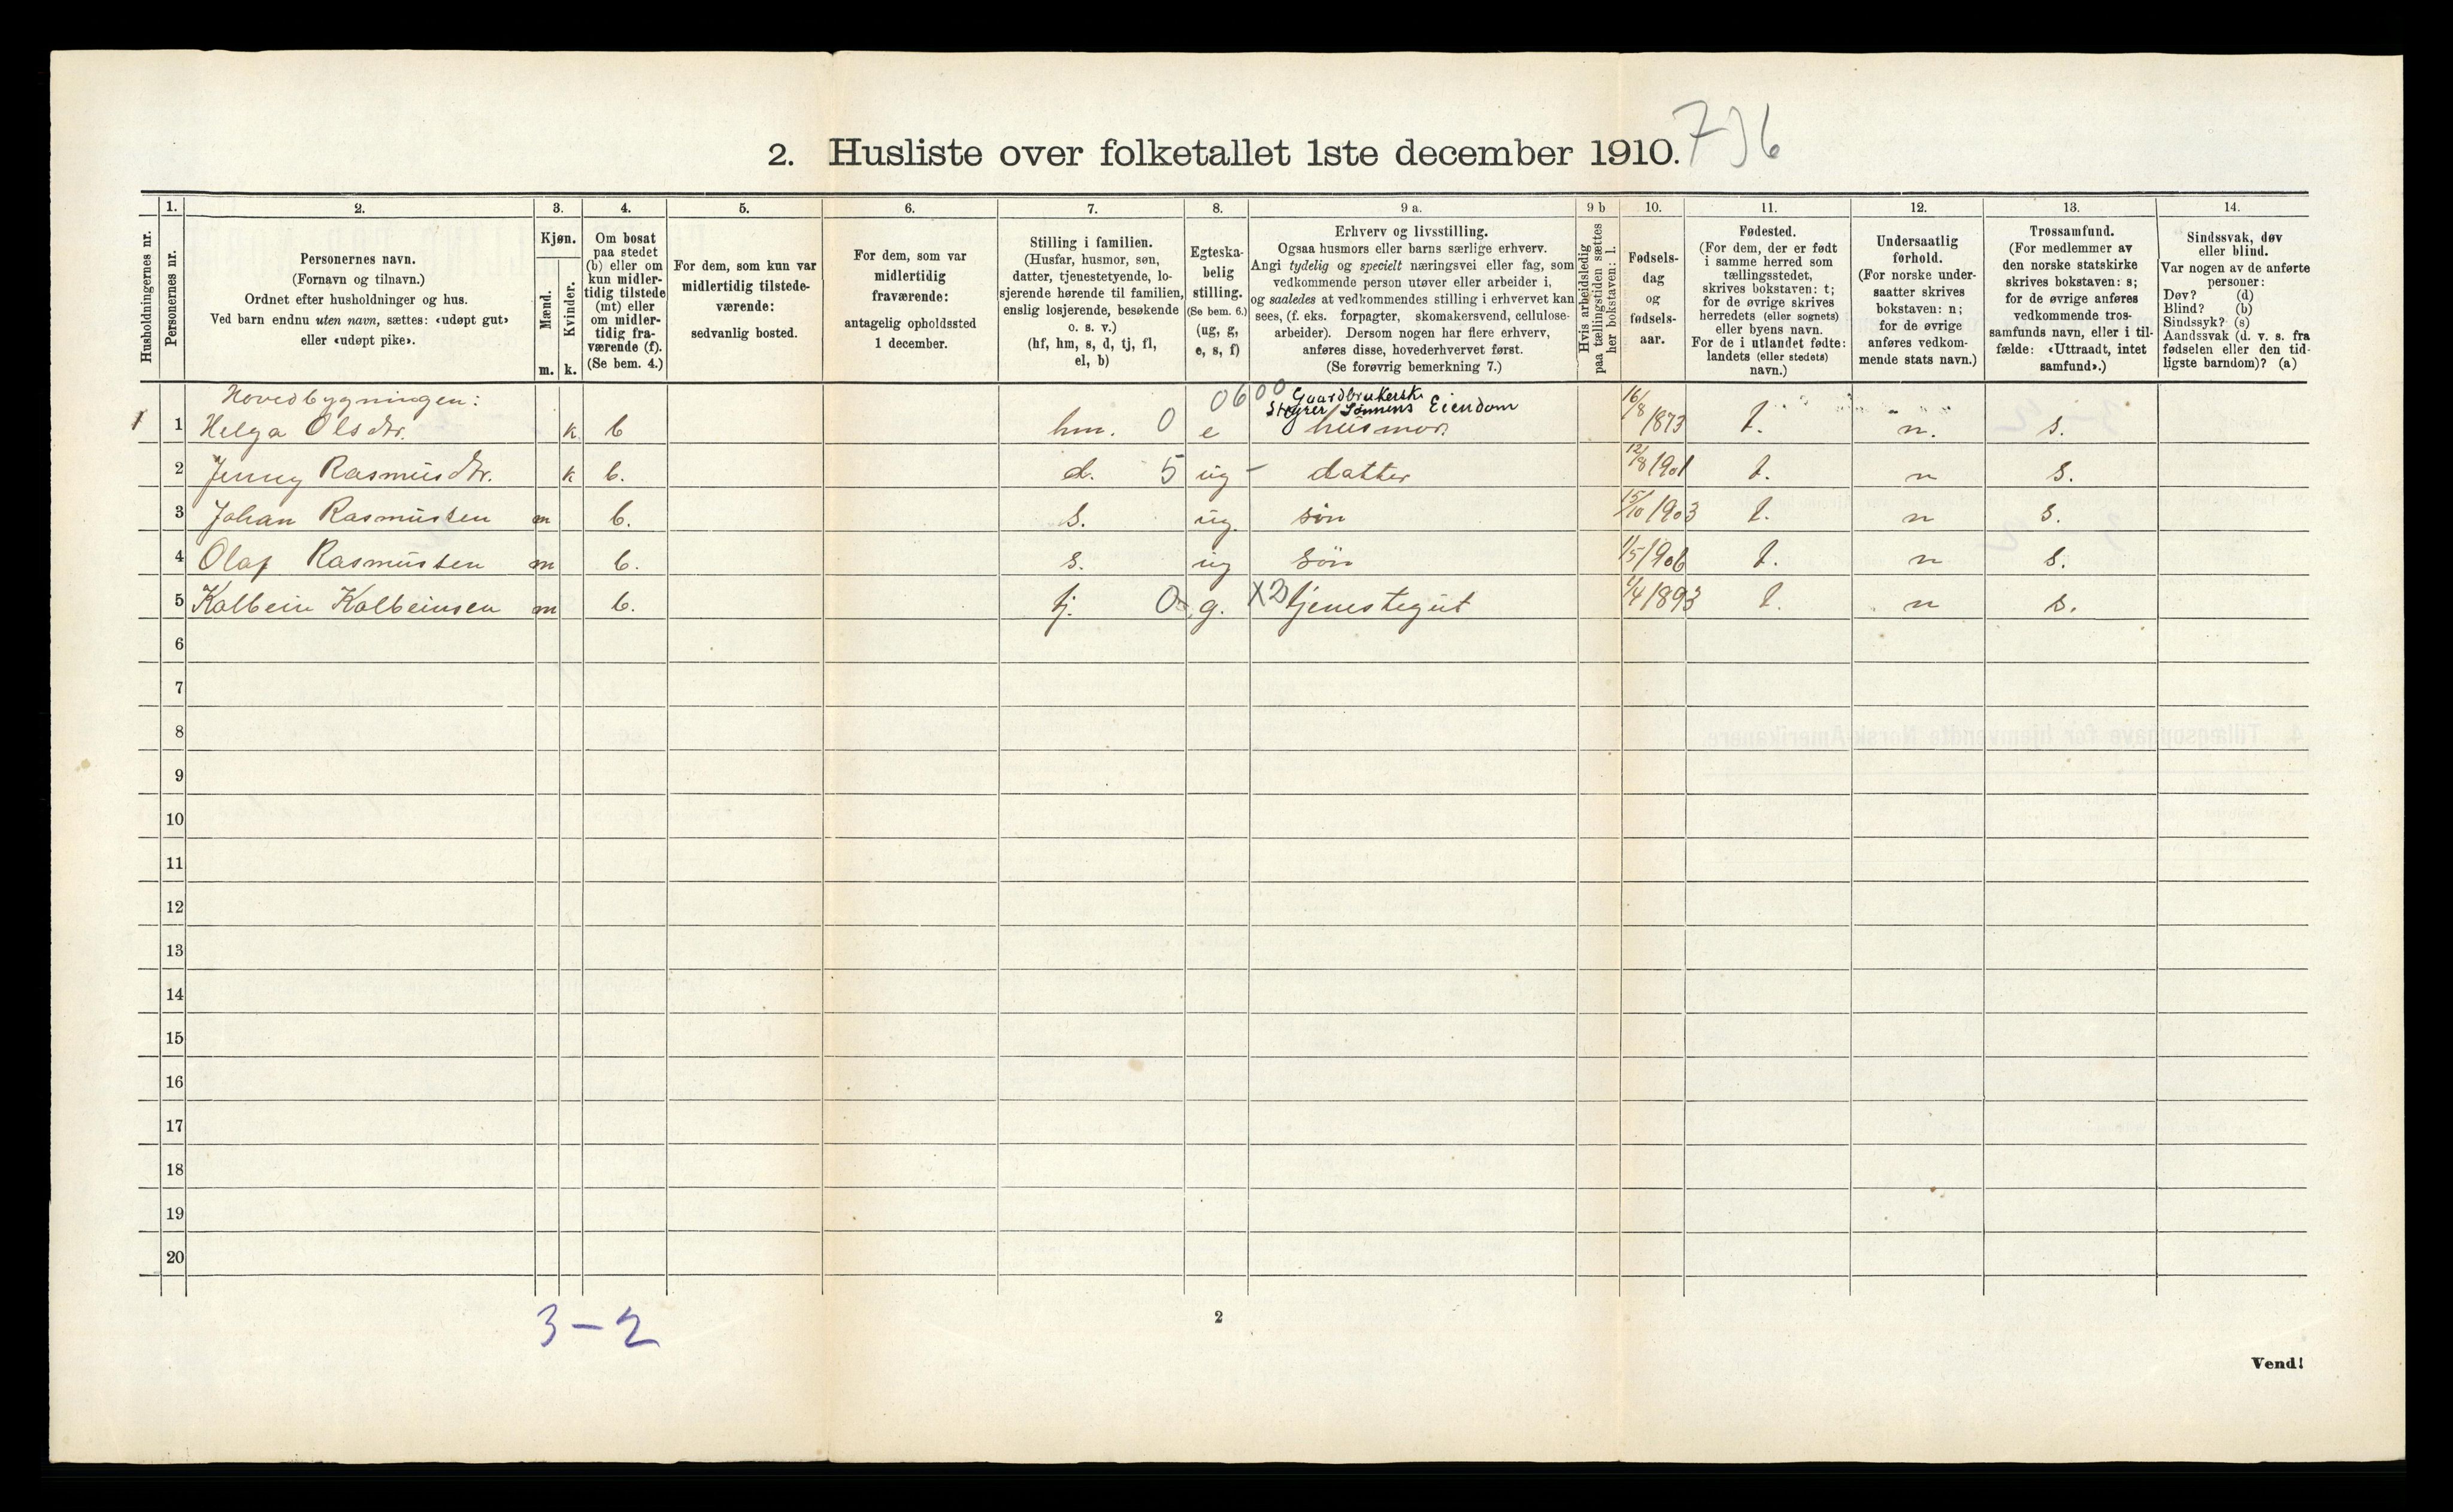 736
2. Husliste over folketallet 1ste december 1910.
Husholdningernes nr.
1.
Personernes nr.
2.
Personernes navn.
(Fornavn og tilnavn.)
Ordnet efter husholdninger og hus.
Ved barn endnu uten navn, sættes: «udøpt gut»
eller «udøpt pike».
3.
Kjøn.
Mænd.
Kvinder.
m. k.
4.
Om bosat
paa stedet
(b) eller om
kun midler-
tidig tilstede
(mt) eller
om midler-
tidig fra-
værende (f).
(Se bem. 4.)
5.
For dem, som kun var
midlertidig tilstede-
værende:
sedvanlig bosted.
6.
For dem, som var
midlertidig
fraværende:
antagelig opholdssted
1 december.
7.
Stilling i familien.
(Husfar, husmor, søn,
datter, tjenestetyende, lo-
sjerende hørende til familien,
enslig losjerende, besøkende
o. s. v.)
(hf, hm, s, d, tj, fl,
el, b)
8.
Egteska-
belig
stilling.
(Se bem. 6.)
(ug, g,
e, s, f)
9 a.
Erhverv og livsstilling.
Ogsaa husmors eller barns særlige erhverv.
Angi tydelig og specielt næringsvei eller fag, som
vedkommende person utøver eller arbeider i,
og saaledes at vedkommendes stilling i erhvervet kan
sees, (f. eks. forpagter, skomakersvend, cellulose-
arbeider). Dersom nogen har flere erhverv,
anføres disse, hovederhvervet først.
(Se forøvrig bemerkning 7.)
9 b
Hvis arbeidsledig
paa tællingstiden sættes
her bokstaven: l.
10.
Fødsels-
dag
og
fødsels-
aar.
11.
Fødested.
(For dem, der er født
i samme herred som
tællingsstedet,
skrives bokstaven: t;
for de øvrige skrives
herredets (eller sognets)
eller byens navn.
For de i utlandet fødte:
landets (eller stedets)
navn.)
12.
Undersaatlig
forhold.
(For norske under-
saatter skrives
bokstaven: n;
for de øvrige
anføres vedkom-
mende stats navn.)
13.
Trossamfund.
(For medlemmer av
den norske statskirke
skrives bokstaven: s;
for de øvrige anføres
vedkommende tros-
samfunds navn, eller i til-
fælde: «Uttraadt, intet
samfund».)
14.
Sindssvak, døv
eller blind.
Var nogen av de anførte
personer:
Døv? (d)
Blind? (b)
Sindssyk? (s)
Aandssvak (d. v. s. fra
fødselen eller den tid-
ligste barndom)? (a)
Hovedbygningen: 0600 Gaardbrukersk.
Styrer Sønnens Eiendom
1 1 Helga Olsdtr. k b hm. 0 e husmor. 16/8 1873 t. n. s.
2 Jenny Rasmusdtr. k b. d. 5 ug - datter 12/8 1901 t. n s.
3 Johan Rasmussen m b. s. ug. søn 15/10 1903 t. n s.
4 Olaf Rasmussen m b. s. ug søn 1/5 1906 t. n s.
5 Kolbein Kolbeinsen m b. tj. 0 g. X2 tjenestegut 1/4 1893 t. n s.
6
7
8
9
10
11
12
13
14
15
16
17
18
19
20
3-2
2
Vend!